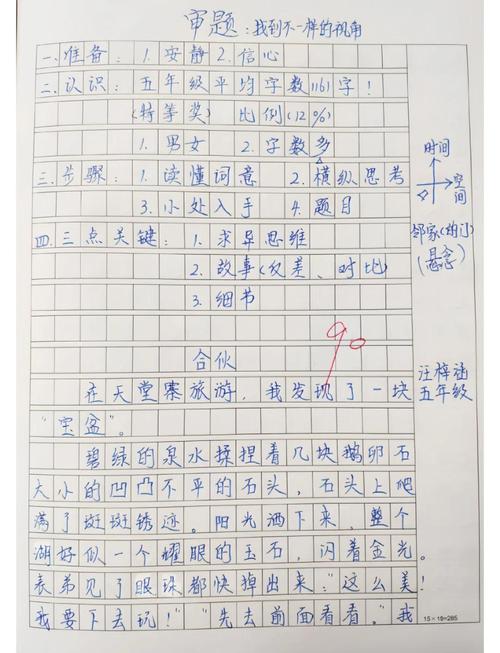 审题：找到不一样的视角
一、准备：1.安静 2.信心
二、认识：五年级平均字数1161字！
(特等奖) 比例(12%)
1.男女 2.字数多
三、步骤：1.读懂词意 2.横纵思考
3.小处入手 4.题目
四、三点关键：1.求异思维
2.故事(反差、对比)
3.细节
时间
空间
邻家(的门)
(悬念)
90
合伙
汪梓涵
五年级
在天堂寨旅游，我发现了一块
“宝盆”。
碧绿的泉水揉捏着几块鹅卵石
大小的凹凸不平的石头，石头上爬
满了斑斑锈迹。阳光洒下来，整个
湖好似一个耀眼的玉石，闪着金光。
表弟见了眼珠都快掉出来：“这么美！
我要下去玩！”“先去前面看看。”我
15×19=285